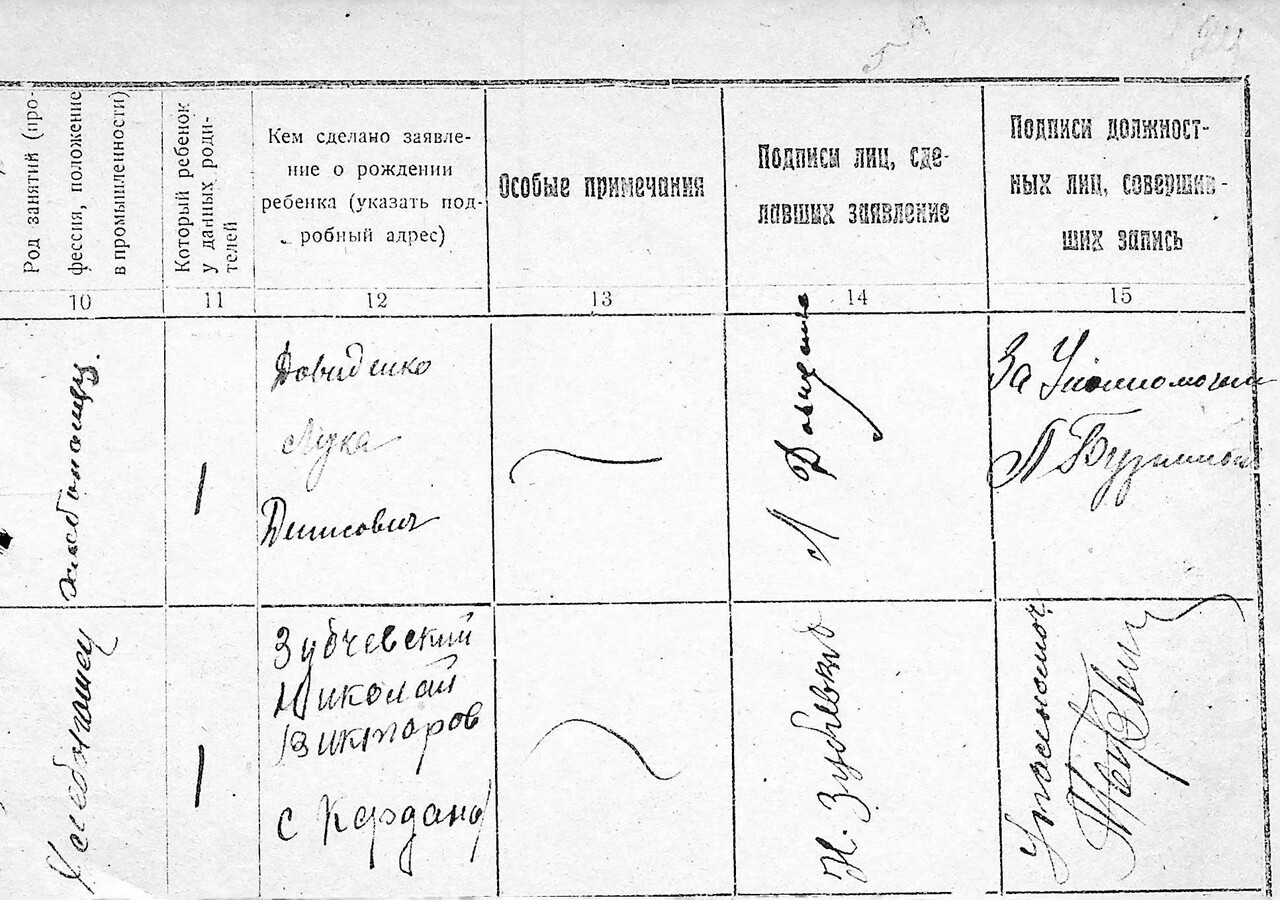 Род занятий (про-
фессия, положение
в промышленности)
Который ребенок
у данных роди-
телей
Кем сделано заявле-
ние о рождении
ребенка (указать под-
робный адрес)
Особые примечания
Подписи лиц, сде-
лавших заявление
Подписи должност-
ных лиц, совершив-
ших запись
10
11
12
13
14
15
хлебопашец.
1
Давиденко
Лука
Денисович
Л Давиденко
За
Хлебопашец
1
Зубчевский
Николай
Викторов
с
Н.